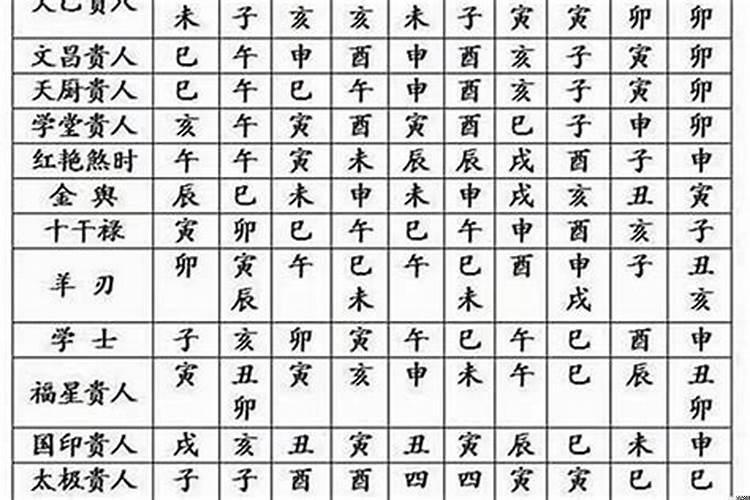 未 子 亥 亥 未 子 寅 寅 卯 卯
文昌貴人 巳 午 申 酉 申 酉 亥 子 寅 卯
天厨貴人 巳 午 巳 午 申 酉 亥 子 寅 卯
学堂貴人 亥 午 寅 酉 寅 酉 巳 子 申 卯
红艳煞时 午 午 寅 未 辰 辰 戌 酉 子 申
金 舆 辰 巳 未 申 未 申 戌 亥 丑 寅
十干禄 寅 卯 巳 午 巳 午 申 酉 亥 子
羊 刃 卯 寅 午 巳 午 巳 酉 申 子 丑
辰 未 未 戌 亥
学 士 子 亥 卯 寅 午 巳 午 巳 酉 申
福星貴人 寅 丑 寅 亥 申 未 午 巳 辰 丑
卯 卯
国印貴人 戌 亥 丑 寅 丑 寅 辰 巳 未 申
太极貴人 子 子 酉 酉 四 四 寅 寅 巳 巳